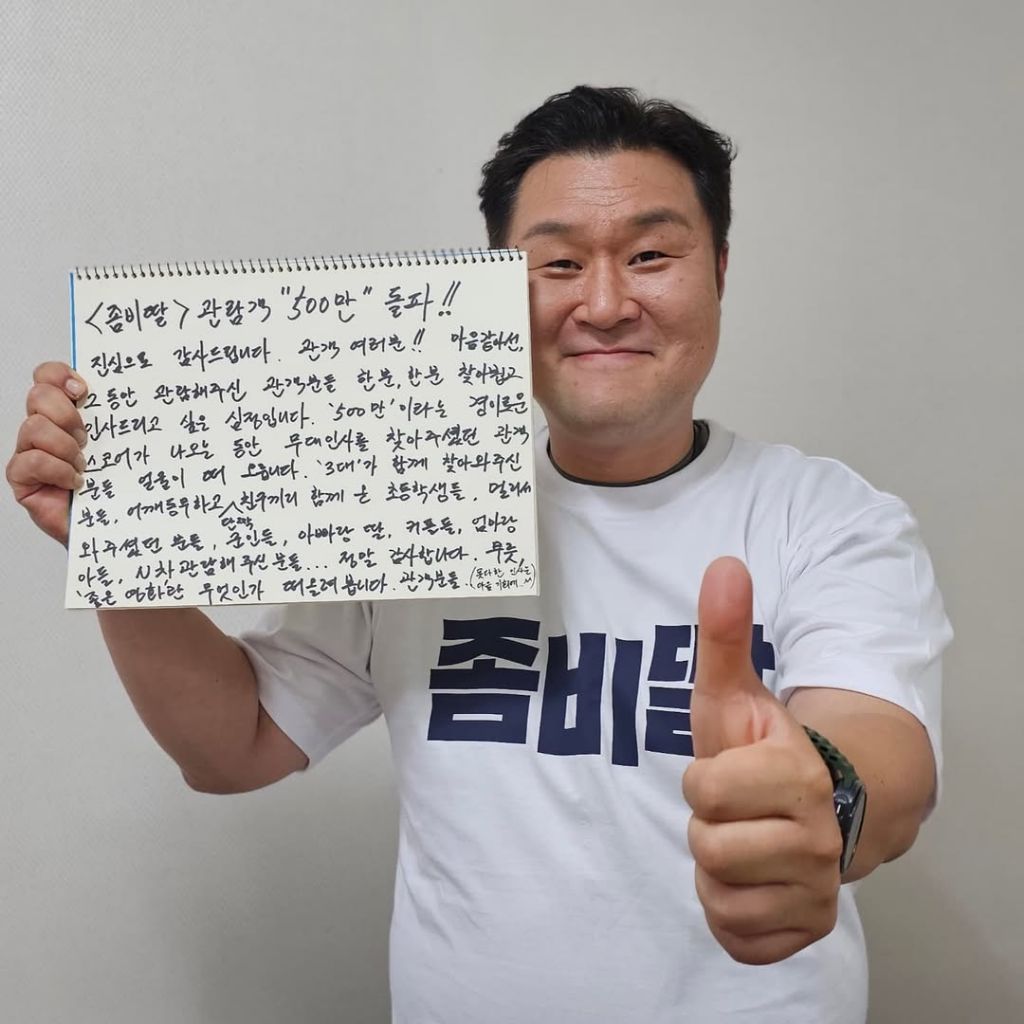 <좀비딸> 관람객 "500만" 돌파!!
진심으로 감사드립니다. 관객 여러분!! 마음같아선,
그동안 관람해주신 관객분들 한분, 한분 찾아뵙고
인사드리고 싶은 심정입니다. '500만'이라는 경이로운
스코어가 나오는 동안 무대인사를 찾아주셨던 관객
분들 얼굴이 떠 오릅니다. '3대'가 함께 찾아와주신
분들, 어깨동무하고 단짝 친구끼리 함께 온 초등학생들, 멀리서
와주셨던 분들, 군인들, 아빠랑 딸, 커플들, 엄마랑
아들, N차 관람해주신 분들... 정말 감사합니다. 무릇,
'좋은 영화'란 무엇인가 떠올려 봅니다. 관객분들. (못다한 인사는
다음 기회에..^^)
좀비딸